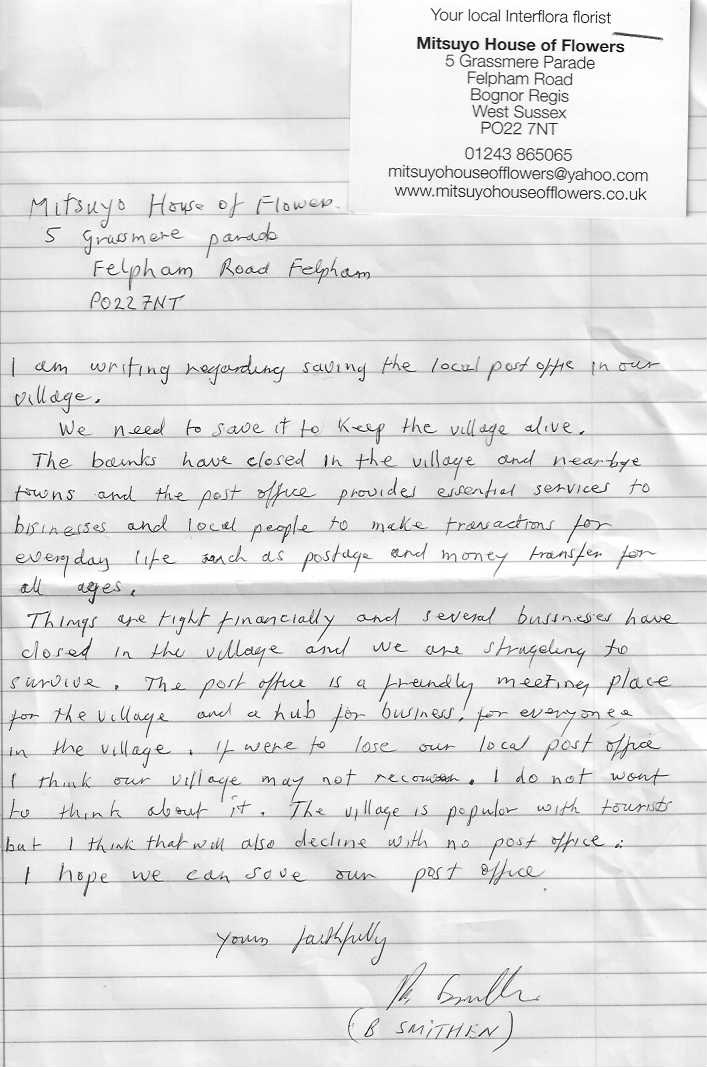 Your local Interflora florist
Mitsuyo House of Flowers
5 Grassmere Parade
Felpham Road
Bognor Regis
West Sussex
PO22 7NT
01243 865065
mitsuyohouseofflowers@yahoo.com
www.mitsuyohouseofflowers.co.uk
Mitsuyo House of Flowers.
5 Grassmere parade
Felpham Road Felpham
PO22 7NT
I am writing regarding saving the local post offie in our
village.
We need to save it to keep the village alive.
The bainks have closed in the village and nearbye
towns and the post office provides essential services to
bisinesses and local people to make transactions for
everyday life such as postage and money transfer for
all ages.
Things are tight financially and several bussneses have
closed in the village and we are strugeling to
survive. The post office is a friendly meeting place
for the village and a hub for business, for everyone
in the village. If were to lose our local post office
I think our village may not recover. I do not want
to think about it. The village is popular with tourists
but I think that will also decline with no post office.
I hope we can save our post office.
Yours faithfully
(B SMITHEN)